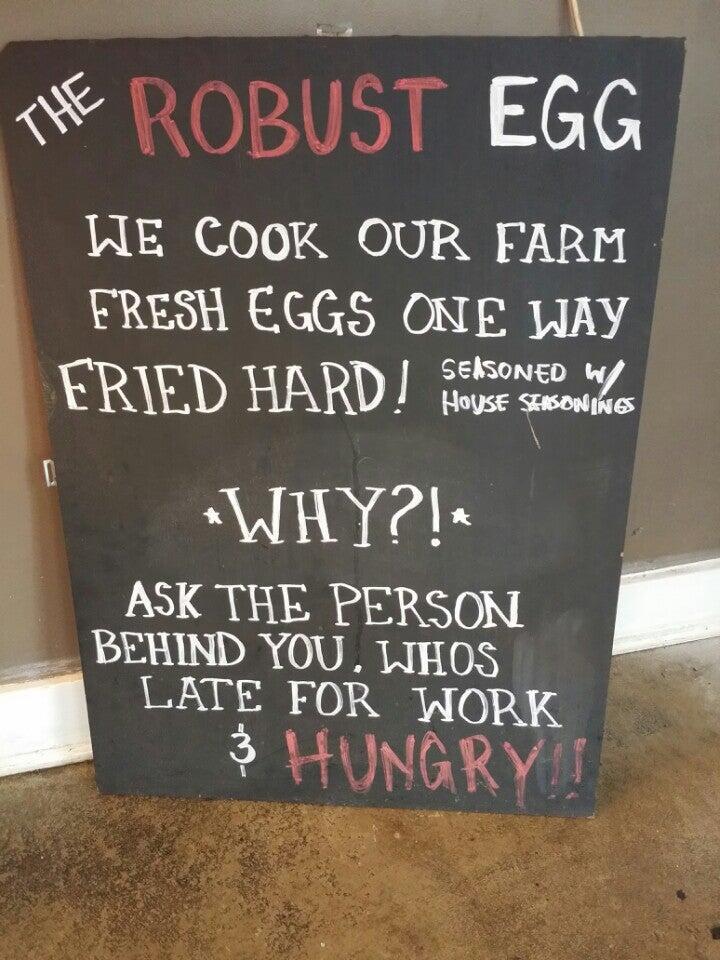 THE ROBUST EGG
WE COOK OUR FARM
FRESH EGGS ONE WAY
FRIED HARD! SEASONED W/
HOUSE SEASONINGS
*WHY?!*
ASK THE PERSON
BEHIND YOU, WHOS
LATE FOR WORK
& HUNGRY!!